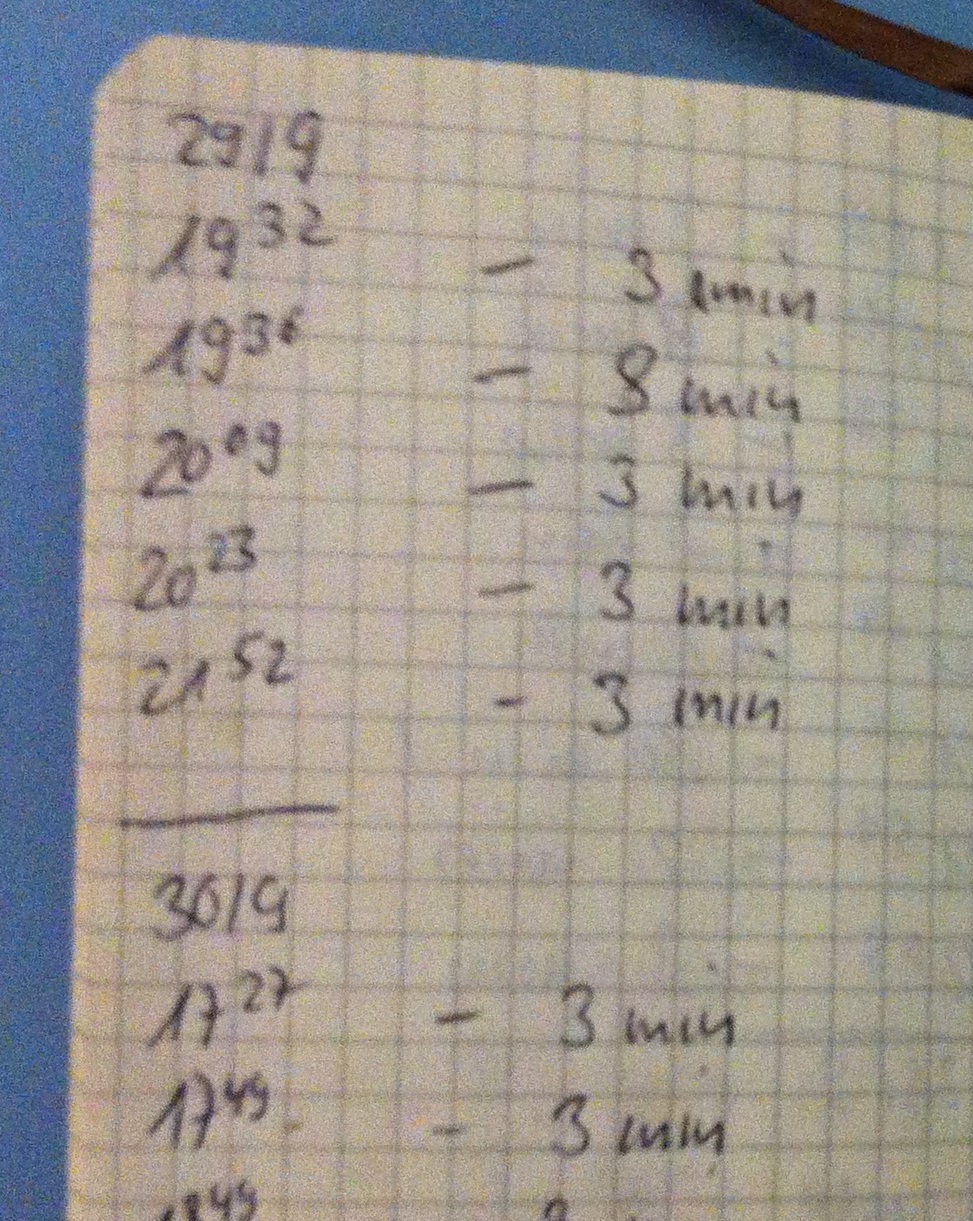 29/9
19³² - 3 min
19³⁶ - 8 min
20⁰⁹ - 3 min
20²³ - 3 min
21⁵² - 3 min
30/9
17²⁷ - 3 min
17⁴⁹ - 3 min